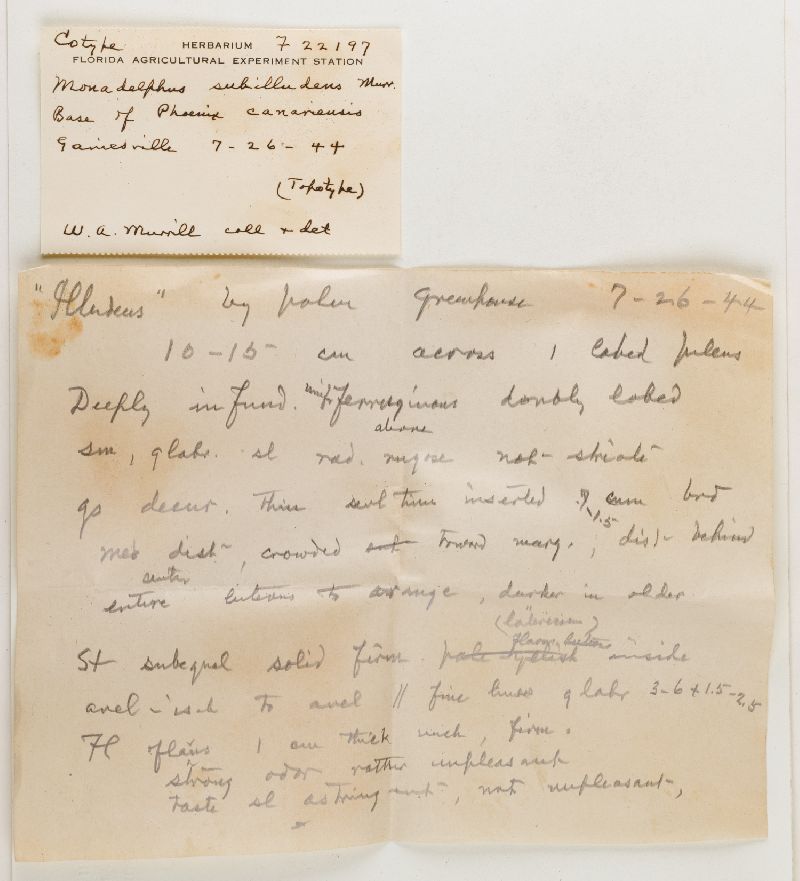 Cotype HERBARIUM F 22197
FLORIDA AGRICULTURAL EXPERIMENT STATION
Monadelphus subilludens Murr.
Base of Phoenix canariensis
Gainesville 7-26-44
(Topotype)
W. A. Murrill coll & det
"Illudens" by palm Greenhouse 7-26-44
10-15 cm across 1 lobed pileus
Deeply infund. ferruginous doubly lobed
above
sm, glabr. sl rad. rugose not striate
go decur. thin inserted 7 cum brd
1.5
med dist, crowded toward marg., dist behind
entire luteous to orange, darker in older
(latericium)
flavo-luteous
St subequal solid firm. inside
avel-isd to avel // fine lines glabr 3-6 x 1.5-2.5
Fl flavus 1 cm thick unch, firm.
strong odor rather unpleasant
taste sl astringent, not unpleasant,